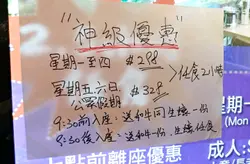 "神級優惠"
星期一至四 $288
>任食2小時
星期五六日 $328
公眾假期
9:30前入座=送和牛同生蠔一份
9:30後入座=送和牛一份,生蠔任食
星期一
(Mon
成人
前離座優惠